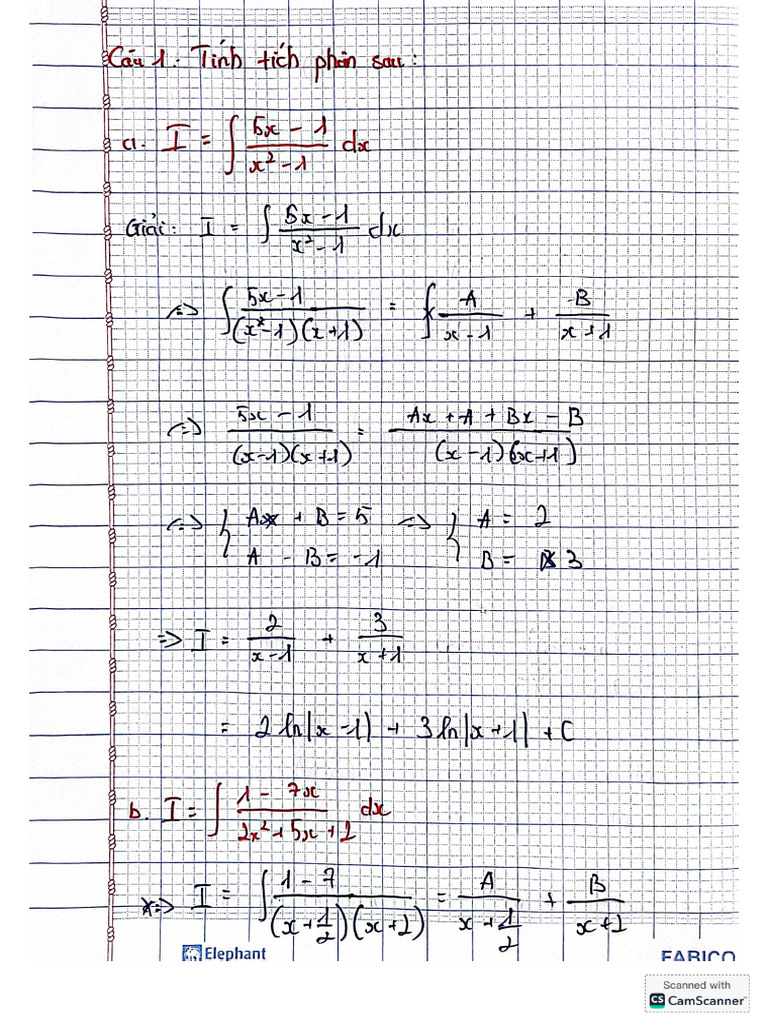 Câu 1. Tính tích phân sau:
a. I = ∫ (5x - 1)/(x² - 1) dx
Giải: I = ∫ (5x - 1)/(x² - 1) dx
=> ∫ (5x - 1)/((x - 1)(x + 1)) = ∫ A/(x - 1) + B/(x + 1)
<=> (5x - 1)/((x - 1)(x + 1)) = (Ax + A + Bx - B)/((x - 1)(x + 1))
<=> { A + B = 5 <=> { A = 2
A - B = -1 B = 3
=> I = 2/(x - 1) + 3/(x + 1)
= 2 ln|x - 1| + 3 ln|x + 1| + C
b. I = ∫ (1 - 7x)/(2x² + 5x + 2) dx
=> I = ∫ (1 - 7)/((x + 1/2)(x + 2)) = A/(x + 1/2) + B/(x + 2)
Elephant FABICO
Scanned with
CS CamScanner